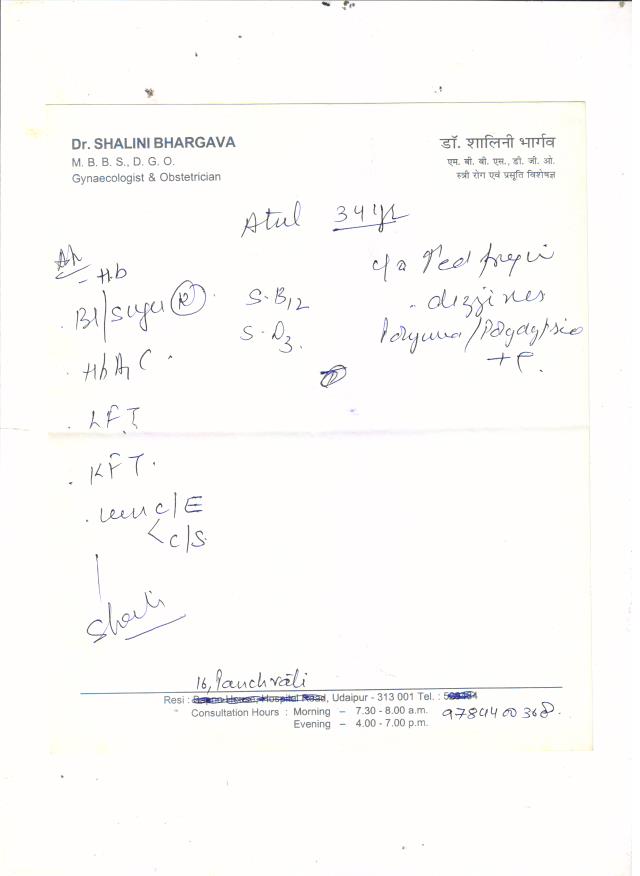 Dr. SHALINI BHARGAVA
M. B. B. S., D. G. O.
Gynaecologist & Obstetrician
डॉ. शालिनी भार्गव
एम. बी. बी. एस., डी. जी. ओ.
स्त्री रोग एवं प्रसूति विशेषज्ञ
Atul 34 yr
- Hb
. Bl/Sugar (R)
. HbA1C
. LFT
. KFT.
. C/E
< C/S
S. B12
S. D3.
c/o
. dizzines
Polyuria / Polydypsia
16, Panchvati
Resi : Udaipur - 313 001 Tel. :
Consultation Hours : Morning – 7.30 - 8.00 a.m.
Evening – 4.00 - 7.00 p.m.